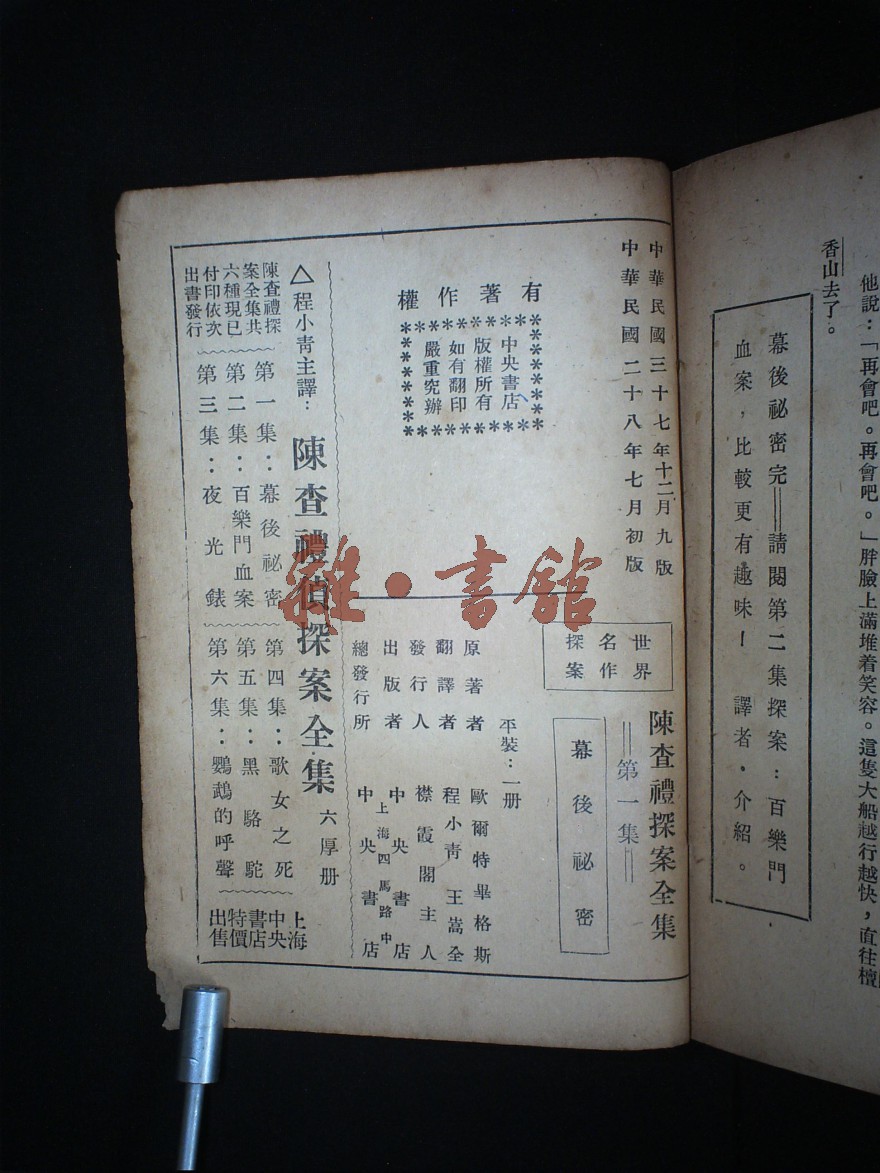 他說：「再會吧。再會吧。」胖臉上滿堆着笑容。這隻大船越行越快，直往檀
香山去了。
幕後祕密完＝＝請閱第二集探案：百樂門
血案，比較更有趣味！　譯者・介紹。
中華民國三十七年十二月九版
中華民國二十八年七月初版
有著作權
中央書店
版權所有
如有翻印
嚴重究辦
陳查禮探案全集
＝＝第一集＝＝
世界
名作
探案
幕後祕密
平裝：一册
原著者　歐爾特畢格斯
翻譯者　程小青　王嵩全
發行人　襟霞閣主人
出版者　中央書店
總發行所　上海四馬路中　中央書店
△程小青主譯：陳查禮偵探案全集　六厚册
陳查禮探
案全集共
六種現已
付印依次
出書發行
第一集：幕後祕密
第二集：百樂門血案
第三集：夜光錶
第四集：歌女之死
第五集：黑駱駝
第六集：鸚鵡的呼聲
上海
中央
書店
特價
出售
雜・書館